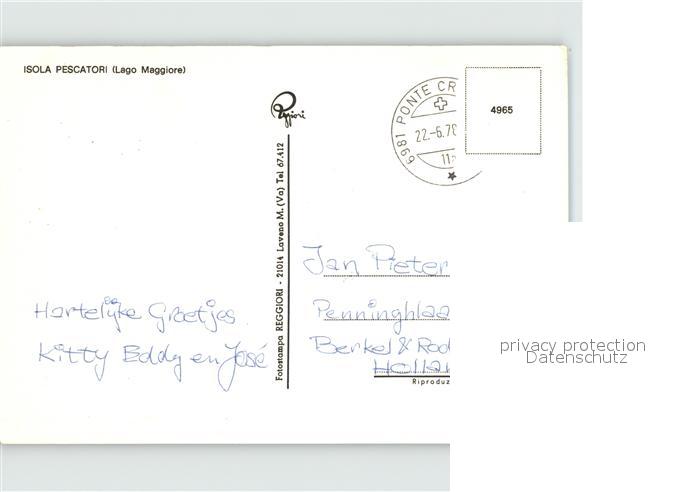 ISOLA PESCATORI (Lago Maggiore)
Reggiori
6981 PONTE CR
22.-6.76
11-
4965
Fotostampa REGGIORI - 21014 Laveno M. (Va) Tel 67.412
Hartelijke Groetjes
Kitty Eddy en José
Jan Pieter
Penninghlaa
Berkel & Rod
Hollan
Riproduz
privacy protection
Datenschutz